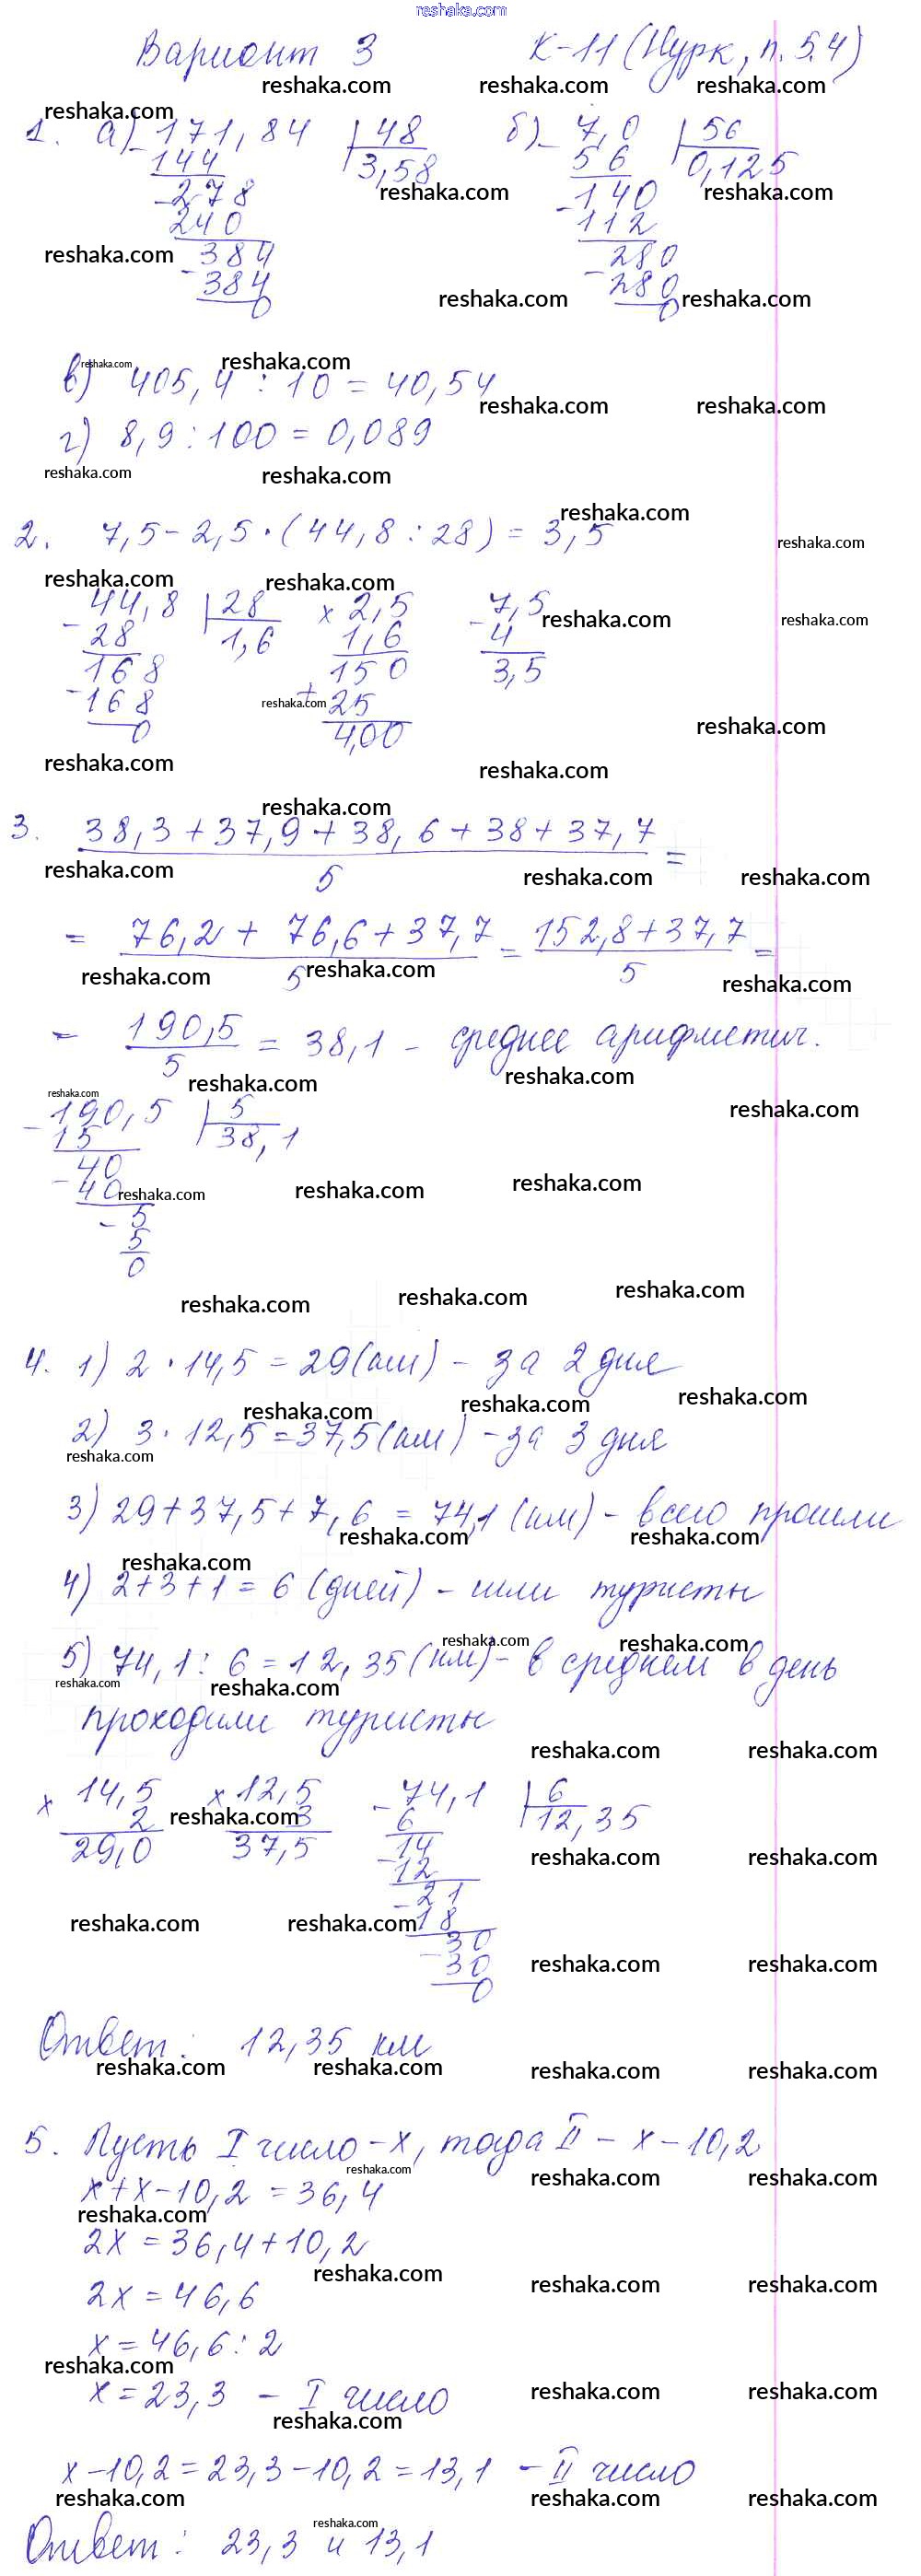 reshaka.com
Вариант 3 К-11 (Нурк, п. 5.4)
1. а) 171,84 | 48 б) 7,0 | 56
144 3,58 56 0,125
278 140
240 112
384 280
384 280
0 0
в) 405,4 : 10 = 40,54
г) 8,9 : 100 = 0,089
2. 7,5 - 2,5 · (44,8 : 28) = 3,5
44,8 | 28 × 2,5 7,5
28 1,6 1,6 4
168 150 3,5
168 + 25
0 4,00
3. 38,3 + 37,9 + 38,6 + 38 + 37,7 =
5
= 76,2 + 76,6 + 37,7 = 152,8 + 37,7 =
5 5
= 190,5 = 38,1 - среднее арифметич.
5
190,5 | 5
15 38,1
40
40
5
5
0
4. 1) 2 · 14,5 = 29 (км) - за 2 дня
2) 3 · 12,5 = 37,5 (км) - за 3 дня
3) 29 + 37,5 + 7,6 = 74,1 (км) - всего прошли
4) 2 + 3 + 1 = 6 (дней) - шли туристы
5) 74,1 : 6 = 12,35 (км) - в среднем в день
проходили туристы
× 14,5 × 12,5 74,1 | 6
2 3 6 12,35
29,0 37,5 14
12
21
18
30
30
0
Ответ: 12,35 км
5. Пусть I число - x, тогда II - x - 10,2
x + x - 10,2 = 36,4
2x = 36,4 + 10,2
2x = 46,6
x = 46,6 : 2
x = 23,3 - I число
x - 10,2 = 23,3 - 10,2 = 13,1 - II число
Ответ: 23,3 и 13,1